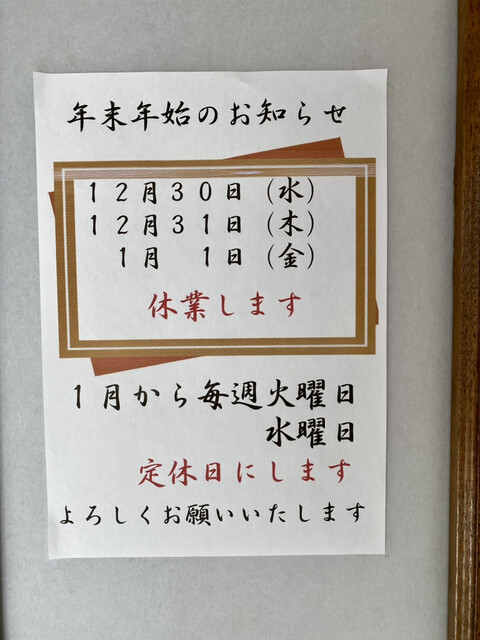 年末年始のお知らせ
１２月３０日（水）
１２月３１日（木）
１月　１日（金）
休業します
１月から毎週火曜日
水曜日
定休日にします
よろしくお願いいたします